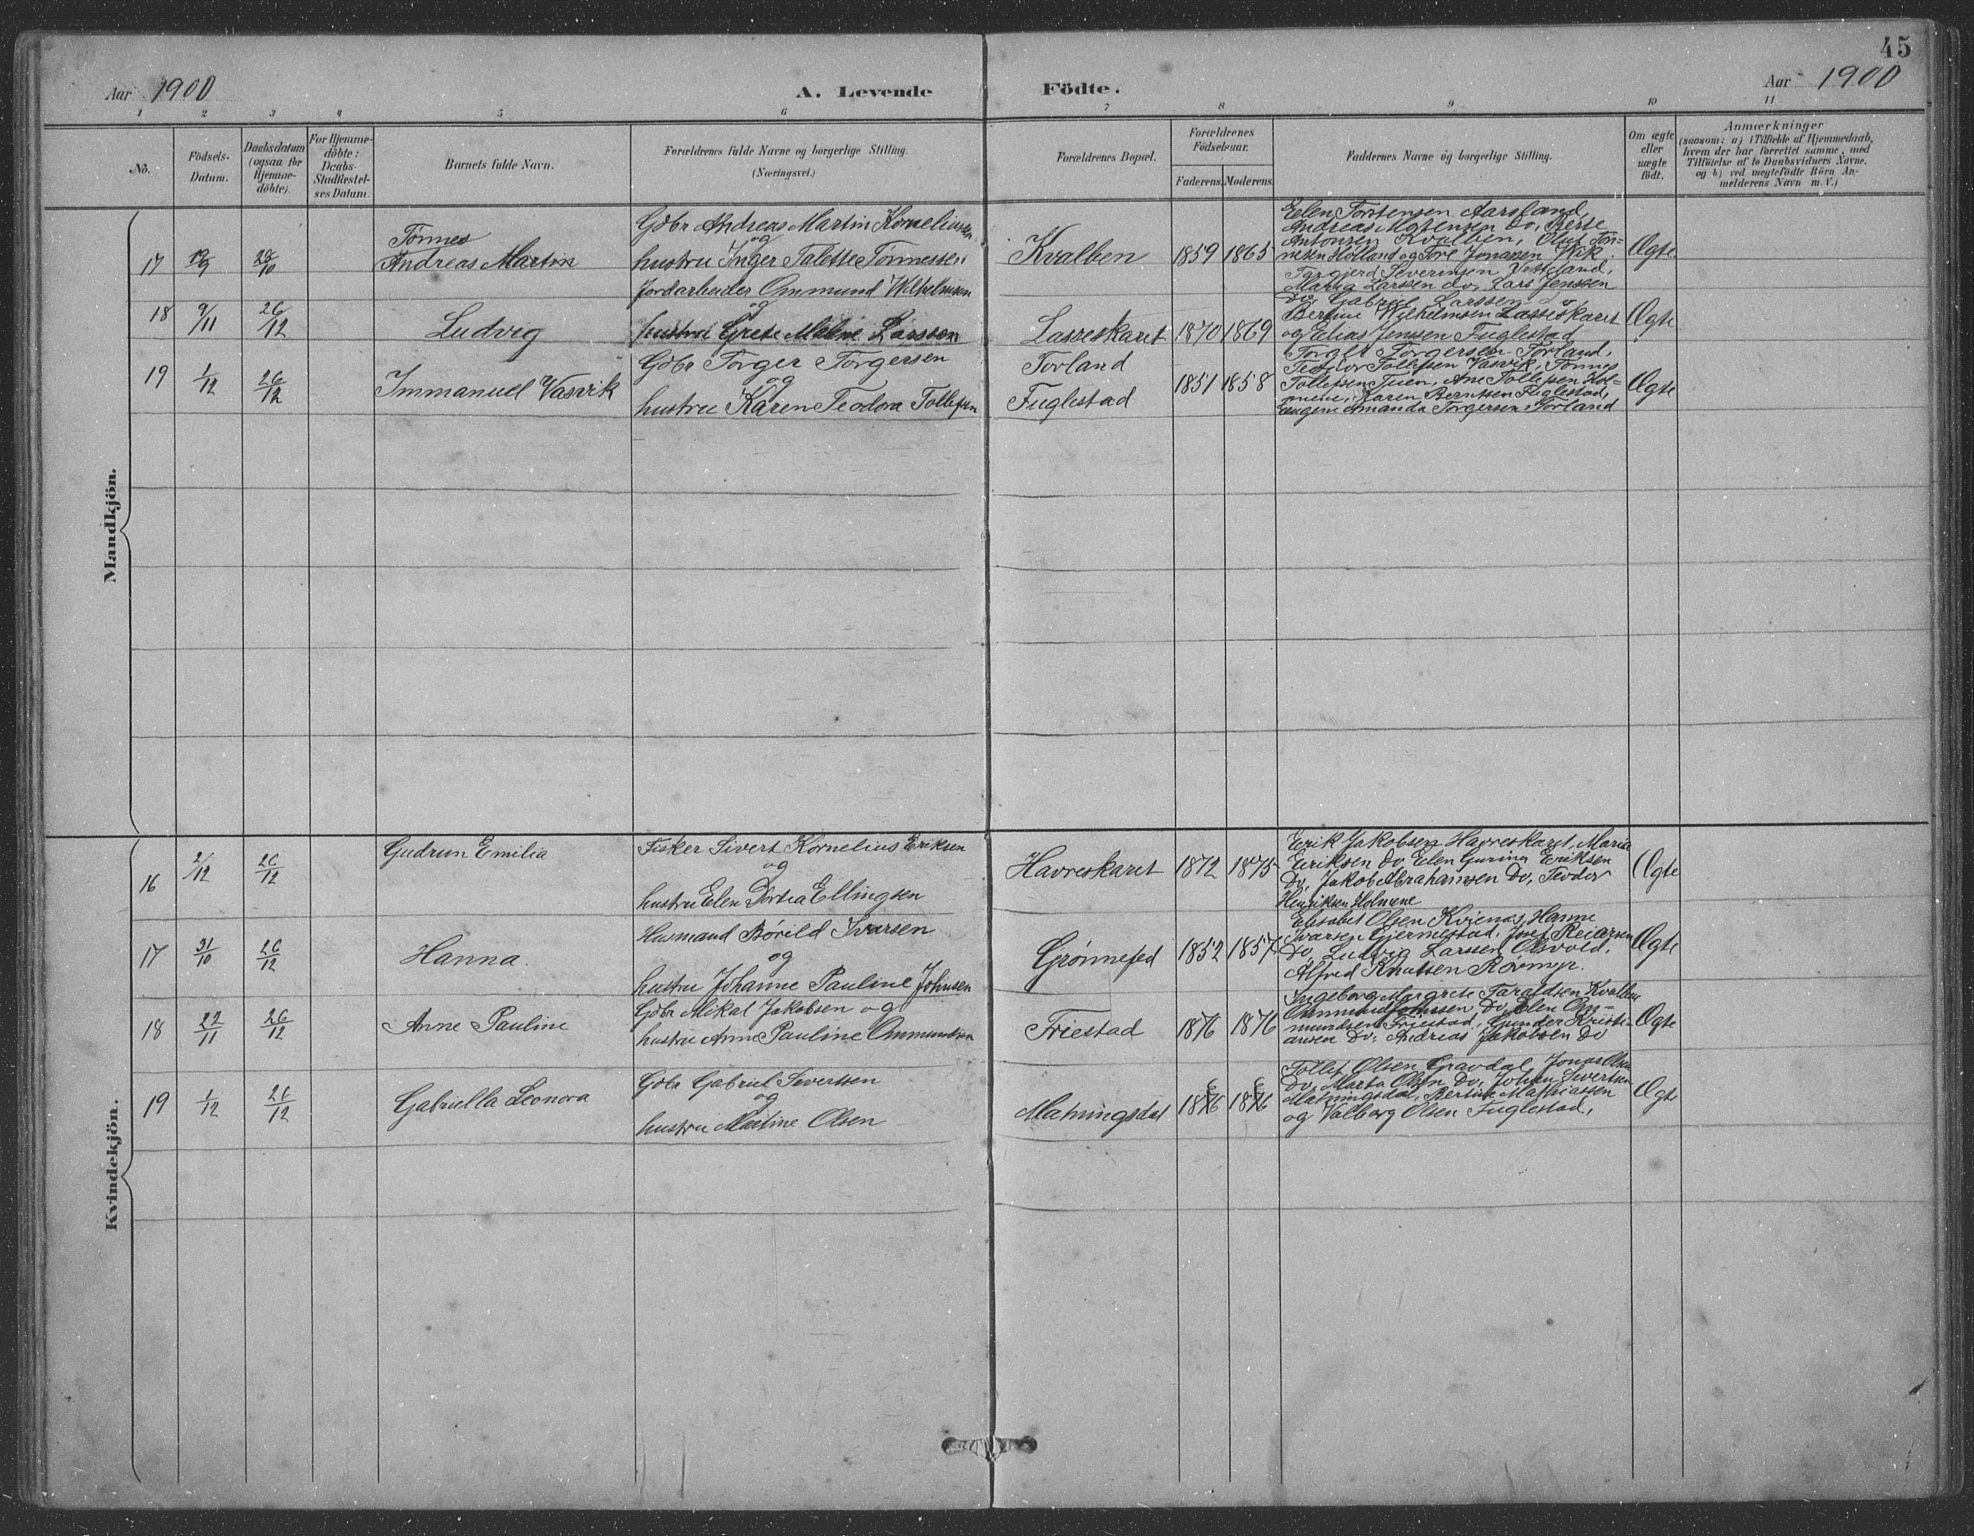 45
Aar 1900
A. Levende
Födte.
Aar 1900
1 2 3 4 5 6 7 8 9 10 11
No.
Födsels-Datum.
Daabsdatum (ogsaa for Hjemme-döbte).
For Hjemme-döbte: Daabs-Stadfæstel-ses Datum.
Barnets fulde Navn.
Forældrenes fulde Navne og borgerlige Stilling.
(Næringsvei.)
Forældrenes Bopæl.
Forældrenes Födselsaar.
Faderens. Moderens.
Faddernes Navne og borgerlige Stilling.
Om ægte eller uægte födt.
Anmærkninger
(saasom: a) i Tilfælde af Hjemmedaab,
hvem der har forrettet samme, med
Tilföielse af to Daabsvidners Navne.
og b) ved uægtefödte Börn An-
melderens Navn m. V.)
Mandkjön.
17
28/10
Tønnes
Andreas Martin
Gdbr Andreas Martin Kornelius
og
hustru Inger Talette Tønnesen
Kvalben
1859 1865
Elen Torstensen Aarsland,
Andreas Do, Berte
Antonsen Kvalben, Olus Tøn-
nesen Holland og Tore Jonassen Vik.
Ægte
18
9/11
26/12
Ludvig
Jordarbeider Ommund Wilhelmsen
og
hustru Grete Maline Larssen
Lasseskaret
1870 1869
Torgjerd Severinsen
Maria Larssen do, Lars Jenssen
Do, Gabriel Larssen
Bertine Wilhelmsen Lasseskaret
og Elias Jenssen Fuglestad
Ægte
19
1/12
26/12
Immanuel Vasvik
Gdbr Torger Torgersen
og
hustru Karen Teodora Tollefsen
Torland
Fuglestad
1851 1858
Torger Torgersen Torland,
Teodor Tollefsen Vasvik, Tønnes
Tollefsen Tuen, Ane Tollefsen Hol-
mene, Karen Berntsen Fuglestad,
Eugene Amanda Torgersen Torland
Ægte
Kvindekjön.
16
2/12
26/12
Gudrun Emilia
Fisker Sivert Kornelius Eriksen
og
hustru Elen Dortea Ellingsen
Havreskaret
1872 1875
Erik Jakobsen Havreskaret, Maria
Eriksen Do, Elen Gurina Eriksen
Do, Jakob Abrahamsen Do, Teodor
Henriksen Holmene
Ægte
17
31/10
26/12
Hanna.
Husmand Børild Ivarsen
og
hustru Johanne Pauline Johnsen
Grønnefed
1852 1857
Elisabet Olsen Kvienas, Hanne
Ivarsen Gjermestad, Josef Reiarsen
Do, Ludvig Larssen Olsvold,
Alfred Knutsen Rørmyr.
Ægte
18
22/11
26/12
Anne Pauline
Gdbr Mekal Jakobsen og
hustru Anne Pauline Ommundsen
Friestad
1876 1876
Ingeborg Margrete Taraldsen Kvalben
Ommund Do, Elen Om-
mundsen Friestad, Gunder Kristi-
ansen Do, Andreas Jakobsen Do
Ægte
19
1/12
26/12
Gabriella Leonora
Gdbr Gabriel Severtsen
og
hustru Martine Olsen
Matningsdal
Tollef Olsen Gravdal, Jonas Olsen
Do, Marta Olsen Do, Johan Sivertsen
Matningsdal, Bertine Mathiassen
og Valborg Olsen Fuglestad,
Ægte